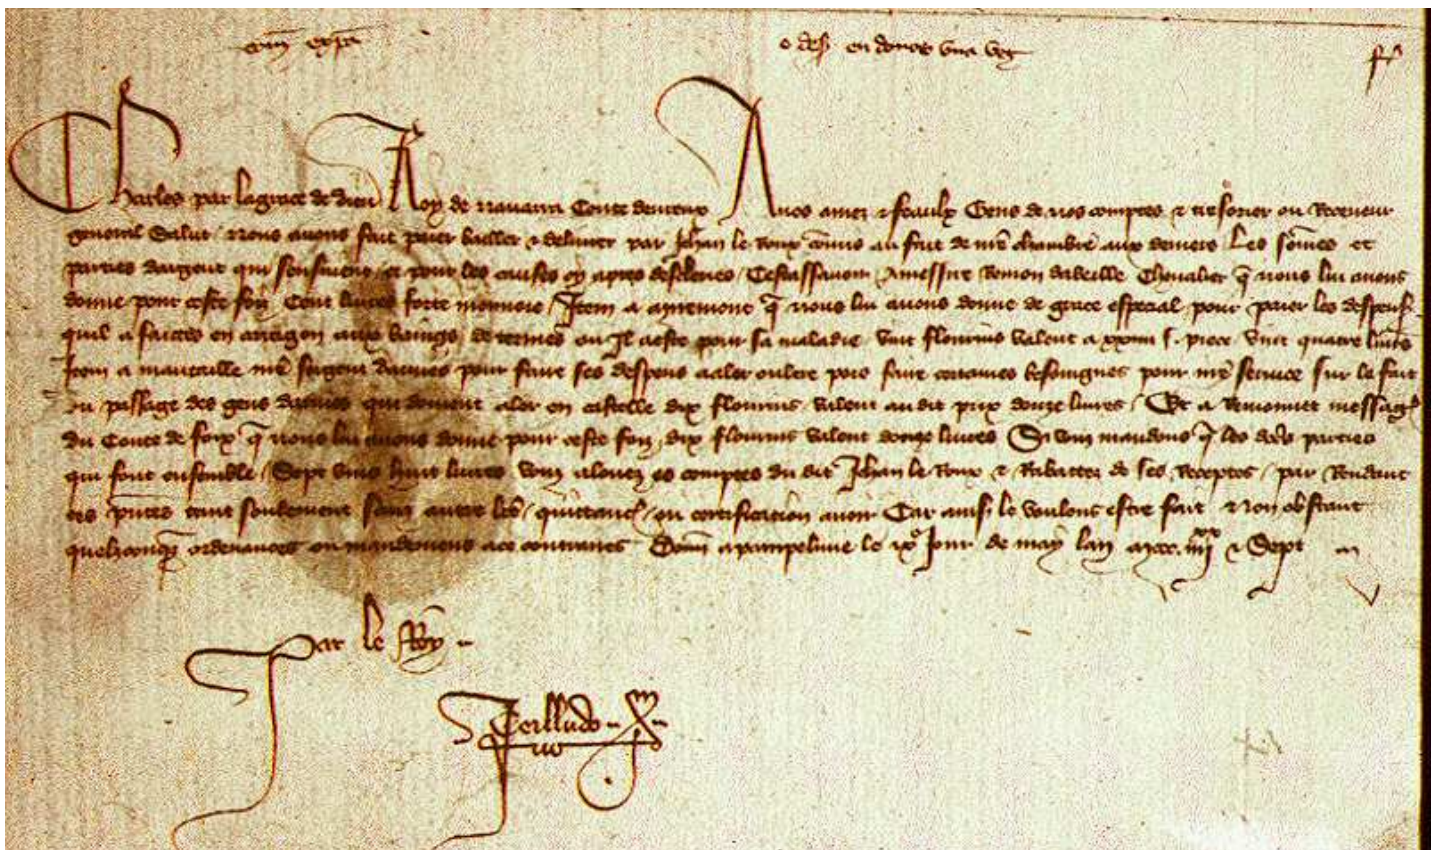 o des en donos una veg
Charles par la grace de dieu Roy de navarra Conte devreux A nos amez & feaulx Gens de nos comptes & tresorier ou Receveur
general Salut nous avons fait paier bailler & delivrer par Jehan le Roux comis au fait de nre chambre aux deniers Les somes et
parties dargent qui sensuient et pour les causes cy apres desclerees Cestassavoir A messire Remon Chevalier q nous lui avons
donne pour ceste foiz Cent livres forte monnoie Item a q nous lui avons donne de grace especial pour paier les despens
quil a faictes en arragon aux baings de ou Il a este pour sa maladie vint florins valent a xxiiii s. piece vint quatre livres
Item a nre sergent darmes pour faire ses despens a aler oultre pors faire certaines besoingnes pour nre service sur le fait
du passage des gens darmes qui doivent aler en castelle dix florins valent audit pris douze livres Et a Remonnet messag
du Conte de foix q nous lui avons donne pour ceste foiz dix florins valent douze livres Si vous mandons q les dces parties
qui font ensemble Sept vins huit livres vous alouez es comptes du dit Jehan le Roux & Rabatez de ses Receptes par Rendant
ces pntes tant seulement sans autre lre quittance ou certification avoir Car ainsi le voulons estre fait & non obstant
quelzconques ordenances ou mandemens a ce contraires Donn a pampelune le ix Jour de may lan mccc iiii xx & Sept
Par le Roy